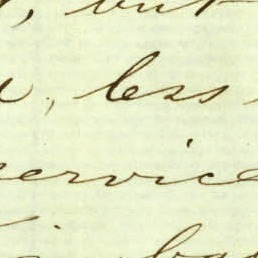 , but
, less
service